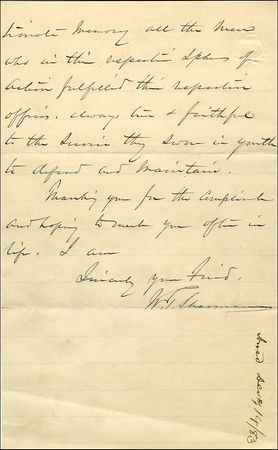 tionate Memory all the men
who in their respective Spheres of
Action fulfilled their respective
offices. always true & faithful
to the Service they Swore in youth
to defend and Maintain.
Thanking you for the Compliment
and hoping to meet you often in
life. I am
Sincerely your Friend,
W. T. Sherman
Ansd 14/83